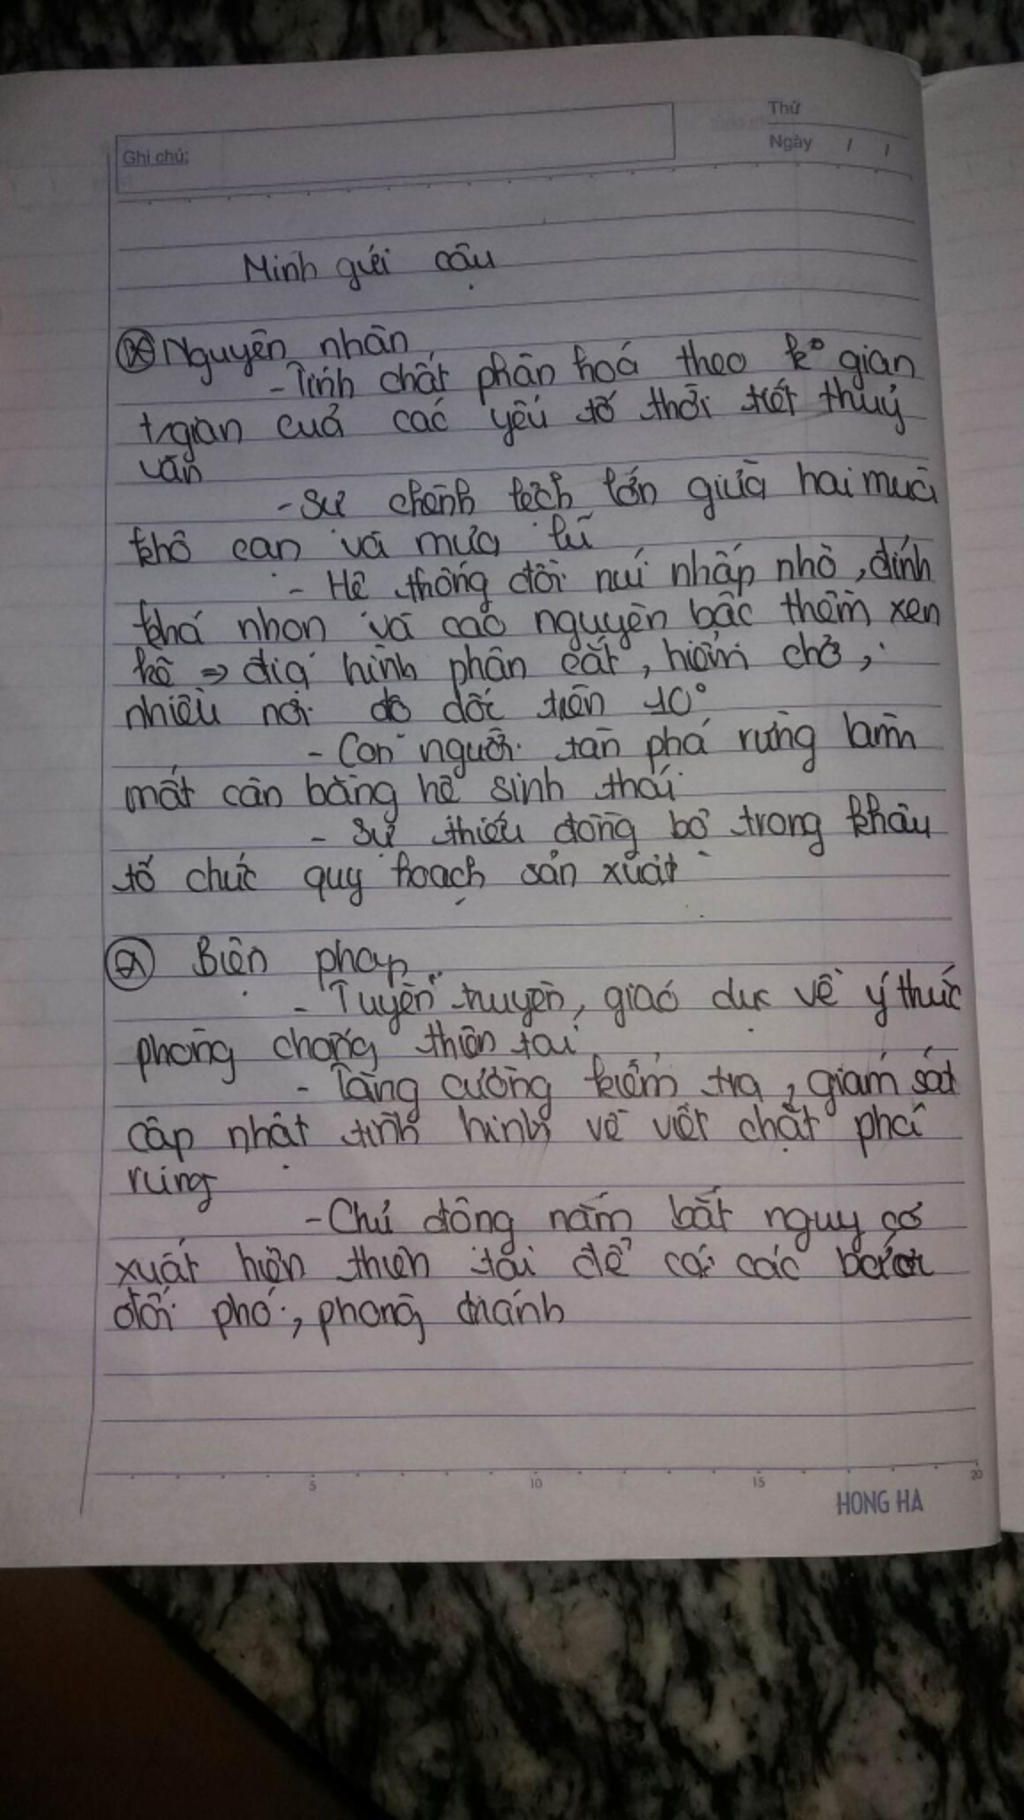 Thứ
Ghi chú:
Ngày / /
Mình gửi cậu
Nguyên nhân
- Tính chất phân hoá theo k° gian
t/gian của các yếu tố thời tiết thuỷ
văn
- Sự chênh lệch lớn giữa hai mùa
khô cạn và mưa lũ
- Hệ thống đồi núi nhấp nhô, đỉnh
khá nhọn và cao nguyên bậc thềm xen
kẽ => địa hình phân cắt, hiểm trở,
nhiều nơi độ dốc trên 10°
- Con người tàn phá rừng làm
mất cân bằng hệ sinh thái
- Sự thiếu đồng bộ trong khâu
tổ chức quy hoạch sản xuất
Biện pháp
- Tuyên truyền, giáo dục về ý thức
phòng chống thiên tai
- Tăng cường kiểm tra, giám sát
cập nhật tình hình về việt chặt phá
rừng
- Chủ động nắm bắt nguy cơ
xuất hiện thiên tai để có các bước
đối phó, phòng tránh
5 10 15 20
HONG HA